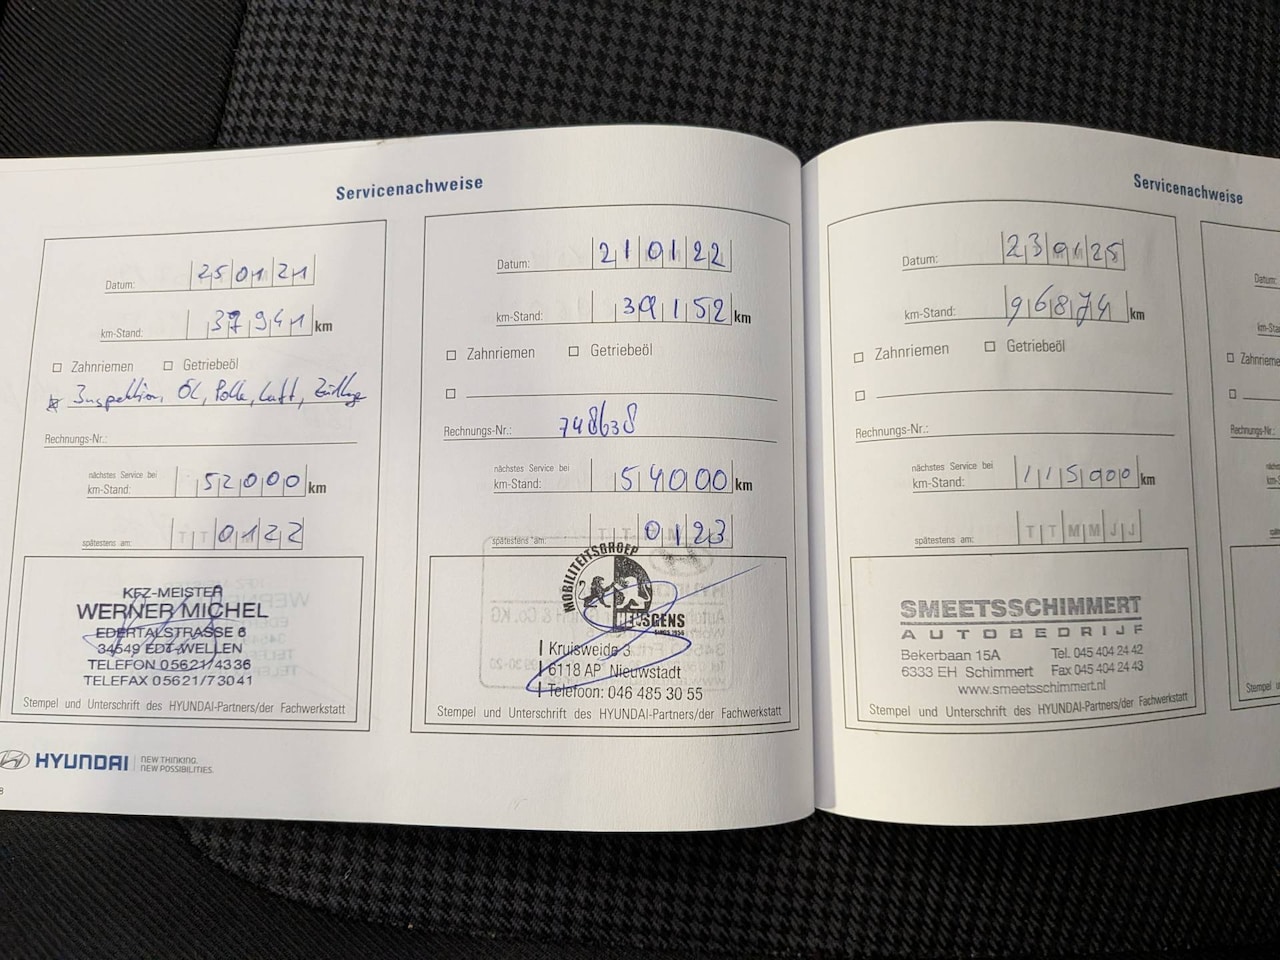 Servicenachweise
Datum: 250121
km-Stand: 37941 km
Zahnriemen Getriebeöl
Inspektion, ÖL, Polle, Luft,
Rechnungs-Nr.:
nächstes Service bei
km-Stand: 52000 km
spätestens am: TT0122
KFZ-MEISTER
WERNER MICHEL
EDERTALSTRASSE 6
34549 EDT-WELLEN
TELEFON 05621/4336
TELEFAX 05621/73041
Stempel und Unterschrift des HYUNDAI-Partners/der Fachwerkstatt
HYUNDAI
NEW THINKING.
NEW POSSIBILITIES.
8
Datum: 210122
km-Stand: 39152 km
Zahnriemen Getriebeöl
Rechnungs-Nr.: 748638
nächstes Service bei
km-Stand: 54000 km
spätestens am: 0123
MOBILITEITSGROEP
SINCE 1956
Kruisweide 3
6118 AP Nieuwstadt
Telefoon: 046 485 30 55
Stempel und Unterschrift des HYUNDAI-Partners/der Fachwerkstatt
Servicenachweise
Datum: 230125
km-Stand: 96874 km
Zahnriemen Getriebeöl
Rechnungs-Nr.:
nächstes Service bei
km-Stand: 115000 km
spätestens am: TTMMJJ
SMEETSSCHIMMERT
AUTOBEDRIJF
Bekerbaan 15A Tel. 045 404 24 42
6333 EH Schimmert Fax 045 404 24 43
www.smeetsschimmert.nl
Stempel und Unterschrift des HYUNDAI-Partners/der Fachwerkstatt
Datum:
km-Sta
Zahnrieme
Rechnungs-Nr.:
Stempel und